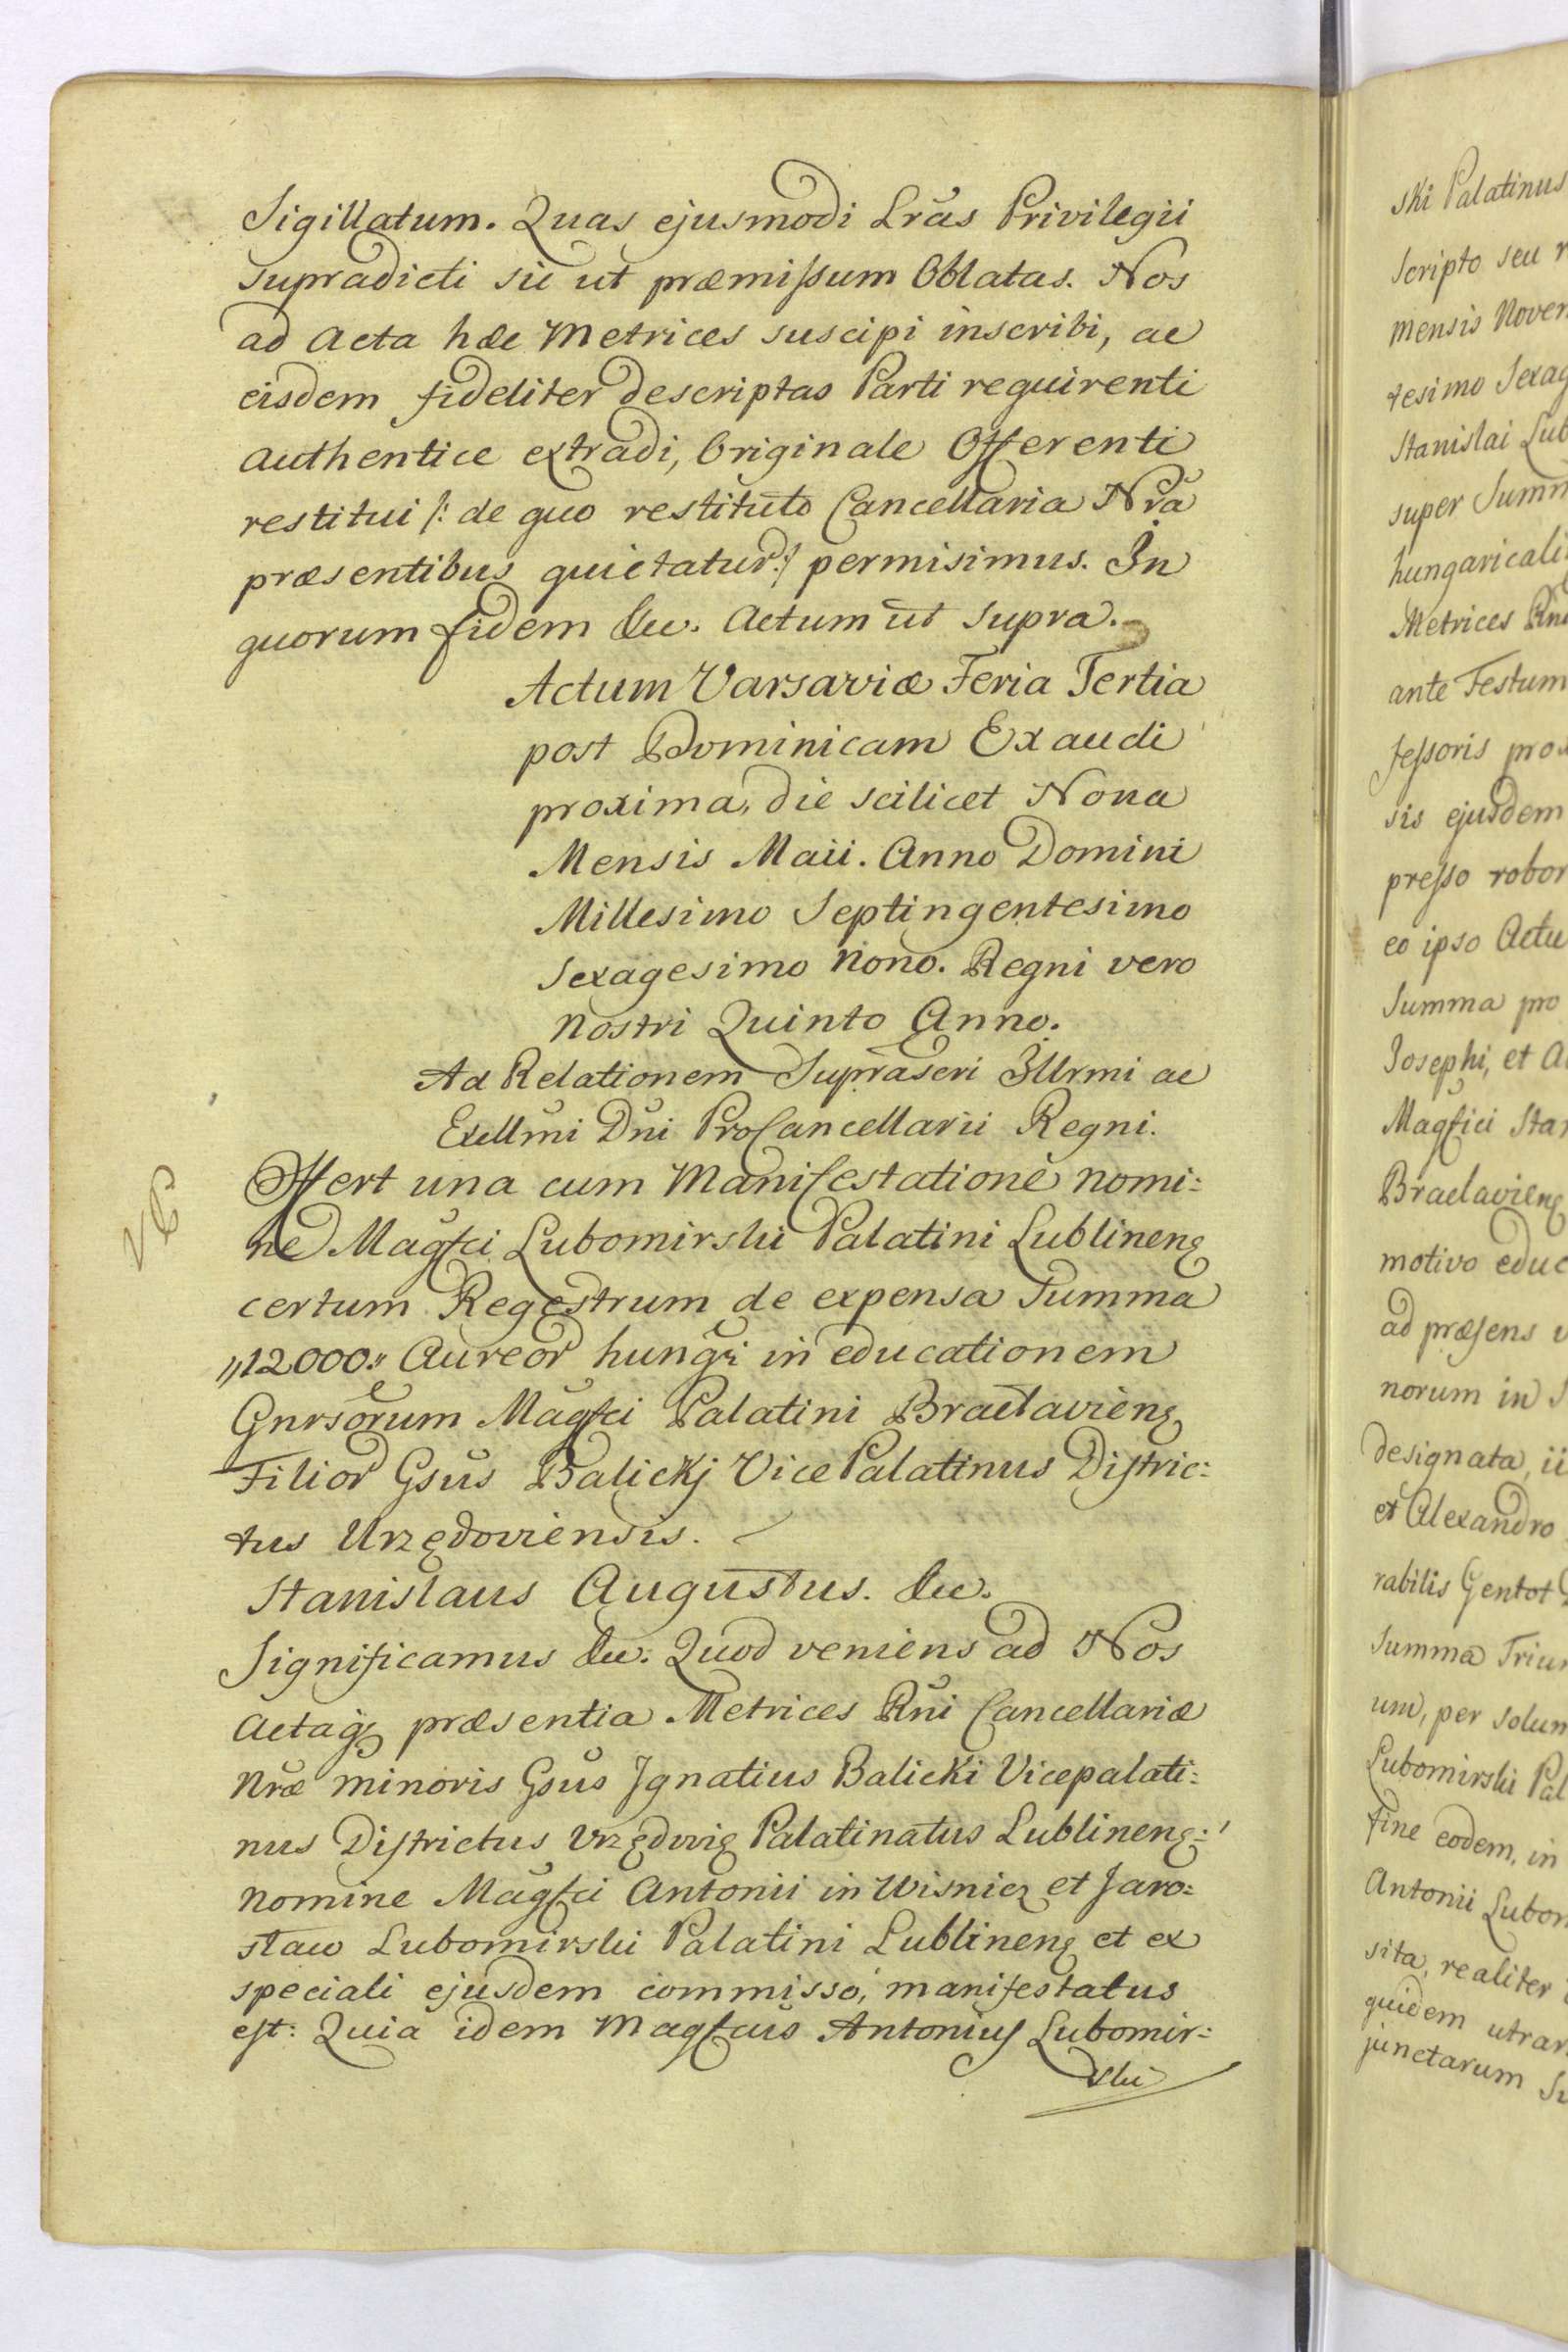 Sigillatum. Quas ejusmodi Lrãs Privilegii
supradicti sic ut præmissum Oblatas. Nos
ad Acta hæc Metrices suscipi inscribi, ac
eisdem fideliter descriptas Parti requirenti
authentice extradi, Originale Offerenti
restitui /: de quo restituto Cancellaria Nrã
præsentibus quietatur :/ permisimus. In
quorum fidem &c. Actum ut supra.
Actum Varsaviæ Feria Tertia
post Dominicam Exaudi
proxima, die scilicet Nona
Mensis Maii. Anno Domini
Millesimo Septingentesimo
Sexagesimo Nono. Regni vero
Nostri Quinto Anno.
Ad Relationem Suprãscri Illrmi ac
Excllmi Dni ProCancellarii Regni.
Offert una cum Manifestatione nomi:
ne Magfci Lubomirski Palatini Lublinenς
certum Regestrum de expensa Summa
„12000.„ Aureor hungr̃i in educationem
Gnrsorum Magfci Palatini Braclavienς
Filior Gsus Balickj Vice Palatinus Distric:
tus Urzędoviensis.
Stanislaus Augustus. &c.
Significamus &c. Quod veniens ad Nos
Actaqς præsentia Metrices Rni Cancellariæ
Nræ minoris Gsus Jgnatius Balicki Vicepalati:
nus Districtus Vrzędovię Palatinatus Lublinenς:
nomine Magfci Antonii in Wisnicz et Jaro:
staw Lubomirski Palatini Lublinenς et ex
speciali ejusdem commisso, manifestatus
est: Quia idem Magfcus Antonius Lubomir:
ski
ski Palatinus
scripto seu
mensis Novem
tesimo Sexag
Stanislai Lub
super Summ
hungaricali
Metrices Rn
ante Festum
fessoris prox
sis ejusdem
presso robor
eo ipso Actu
Summa pro
Josephi, et A
Magfici Sta
Braclavienς
motivo educ
ad præsens
norum in
designata, ii
et Alexandro
rabilis Gentot
Summa Triu
um, per solum
Lubomirski Pal
fine eodem, in
Antonii Lubom
sita, realiter
quidem utrar
junctarum Su